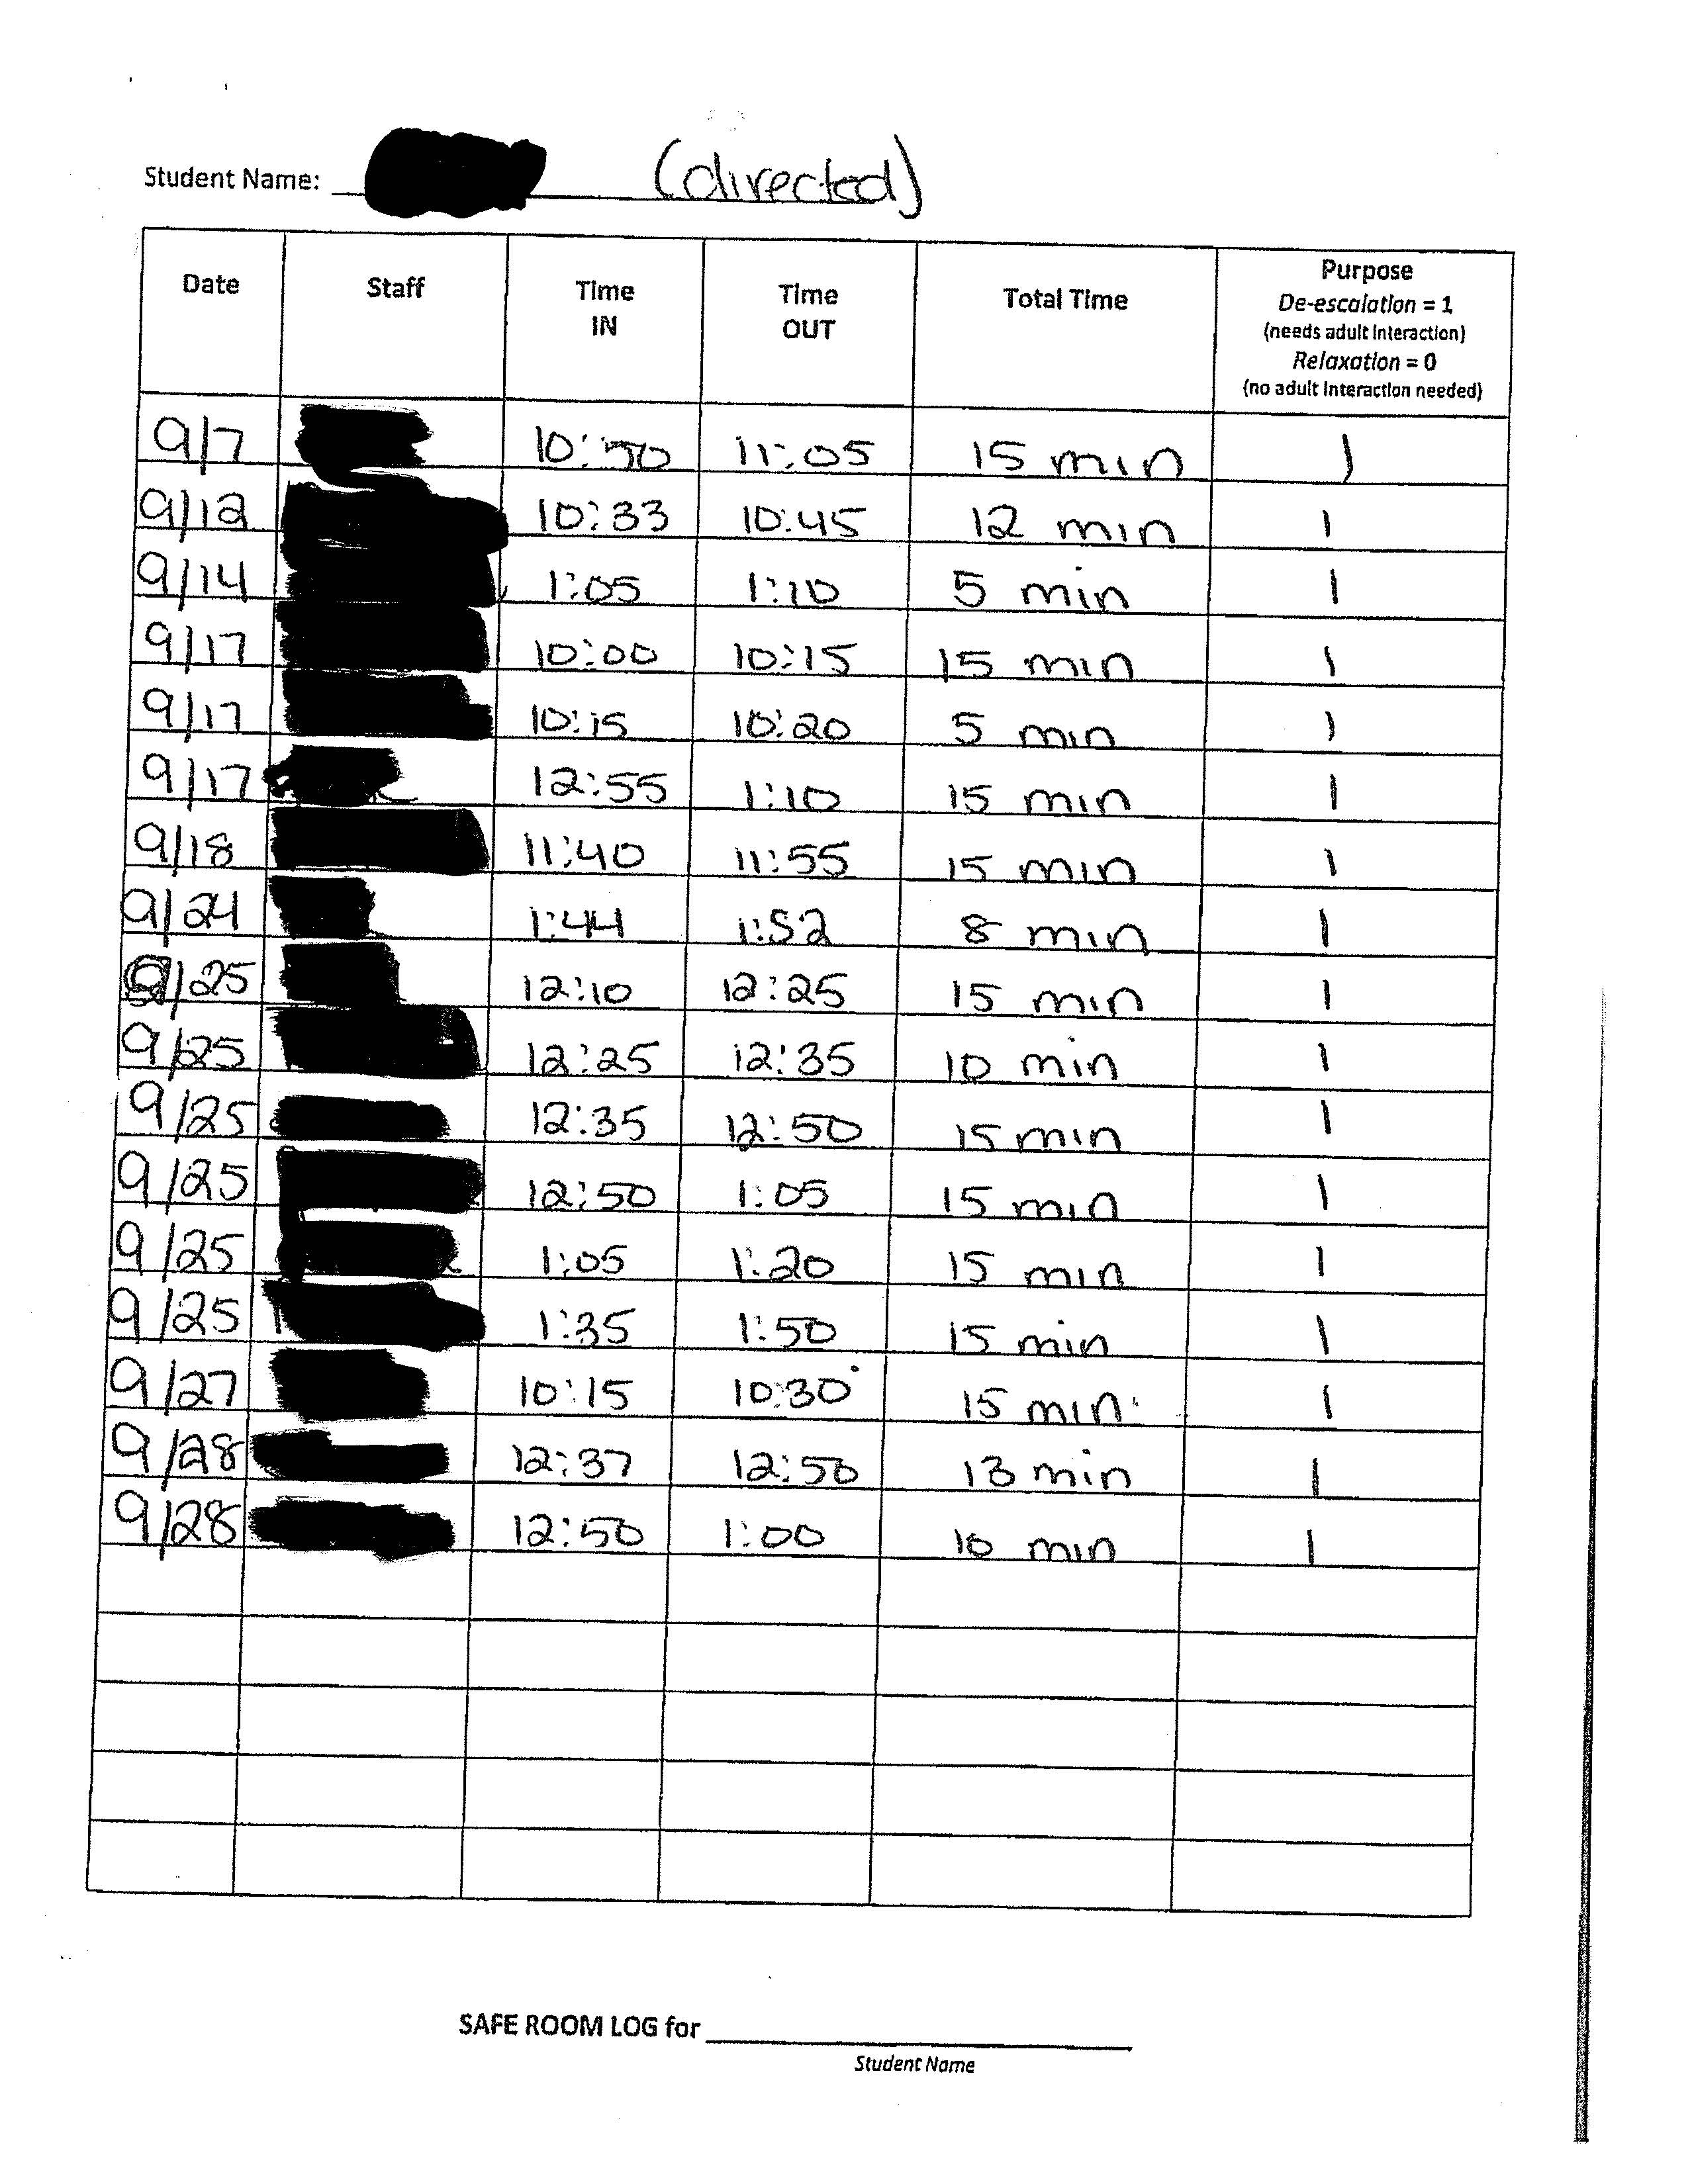 Student Name: (directed)
Date Staff Time IN Time OUT Total Time Purpose
De-escalation = 1
(needs adult interaction)
Relaxation = 0
(no adult interaction needed)
9/7 10:50 11:05 15 min 1
9/12 10:33 10:45 12 min 1
9/14 1:05 1:10 5 min 1
9/17 10:00 10:15 15 min 1
9/17 10:15 10:20 5 min 1
9/17 12:55 1:10 15 min 1
9/18 11:40 11:55 15 min 1
9/24 1:44 1:52 8 min 1
9/25 12:10 12:25 15 min 1
9/25 12:25 12:35 10 min 1
9/25 12:35 12:50 15 min 1
9/25 12:50 1:05 15 min 1
9/25 1:05 1:20 15 min 1
9/25 1:35 1:50 15 min 1
9/27 10:15 10:30 15 min 1
9/28 12:37 12:50 13 min 1
9/28 12:50 1:00 10 min 1
SAFE ROOM LOG for
Student Name